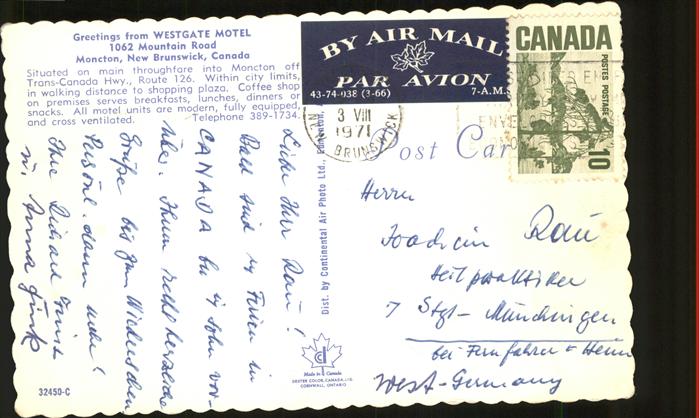 Greetings from WESTGATE MOTEL
1062 Mountain Road
Moncton, New Brunswick, Canada
Situated on main throughfare into Moncton off
Trans-Canada Hwy., Route 126. Within city limits,
in walking distance to shopping plaza. Coffee shop
on premises serves breakfasts, lunches, dinners or
snacks. All motel units are modern, fully equipped,
and cross ventilated. Telephone 389-1734.
BY AIR MAIL
PAR AVION
43-74-038 (3-66) 7-A.M.S
CANADA
POSTES POSTAGE
10
3 VIII
1971
BRUNSWICK
Post Car
Lieber Herr Rau!
Bald sind Ferien in
CANADA schon vor-
über. Ihnen recht herzliche
Grüße bis zum Wiedersehen
Persönl. dann mehr!
Ihre
u. Anna Fink
Dist. by Continental Air Photo Ltd., Edmonton,
Made in Canada
DEXTER COLOR, CANADA, LTD.
CORNWALL, ONTARIO
32450-C
Herrn
Joachim Rau
Heilpraktiker
7 Stgt-Münchingen
bei
West-Germany